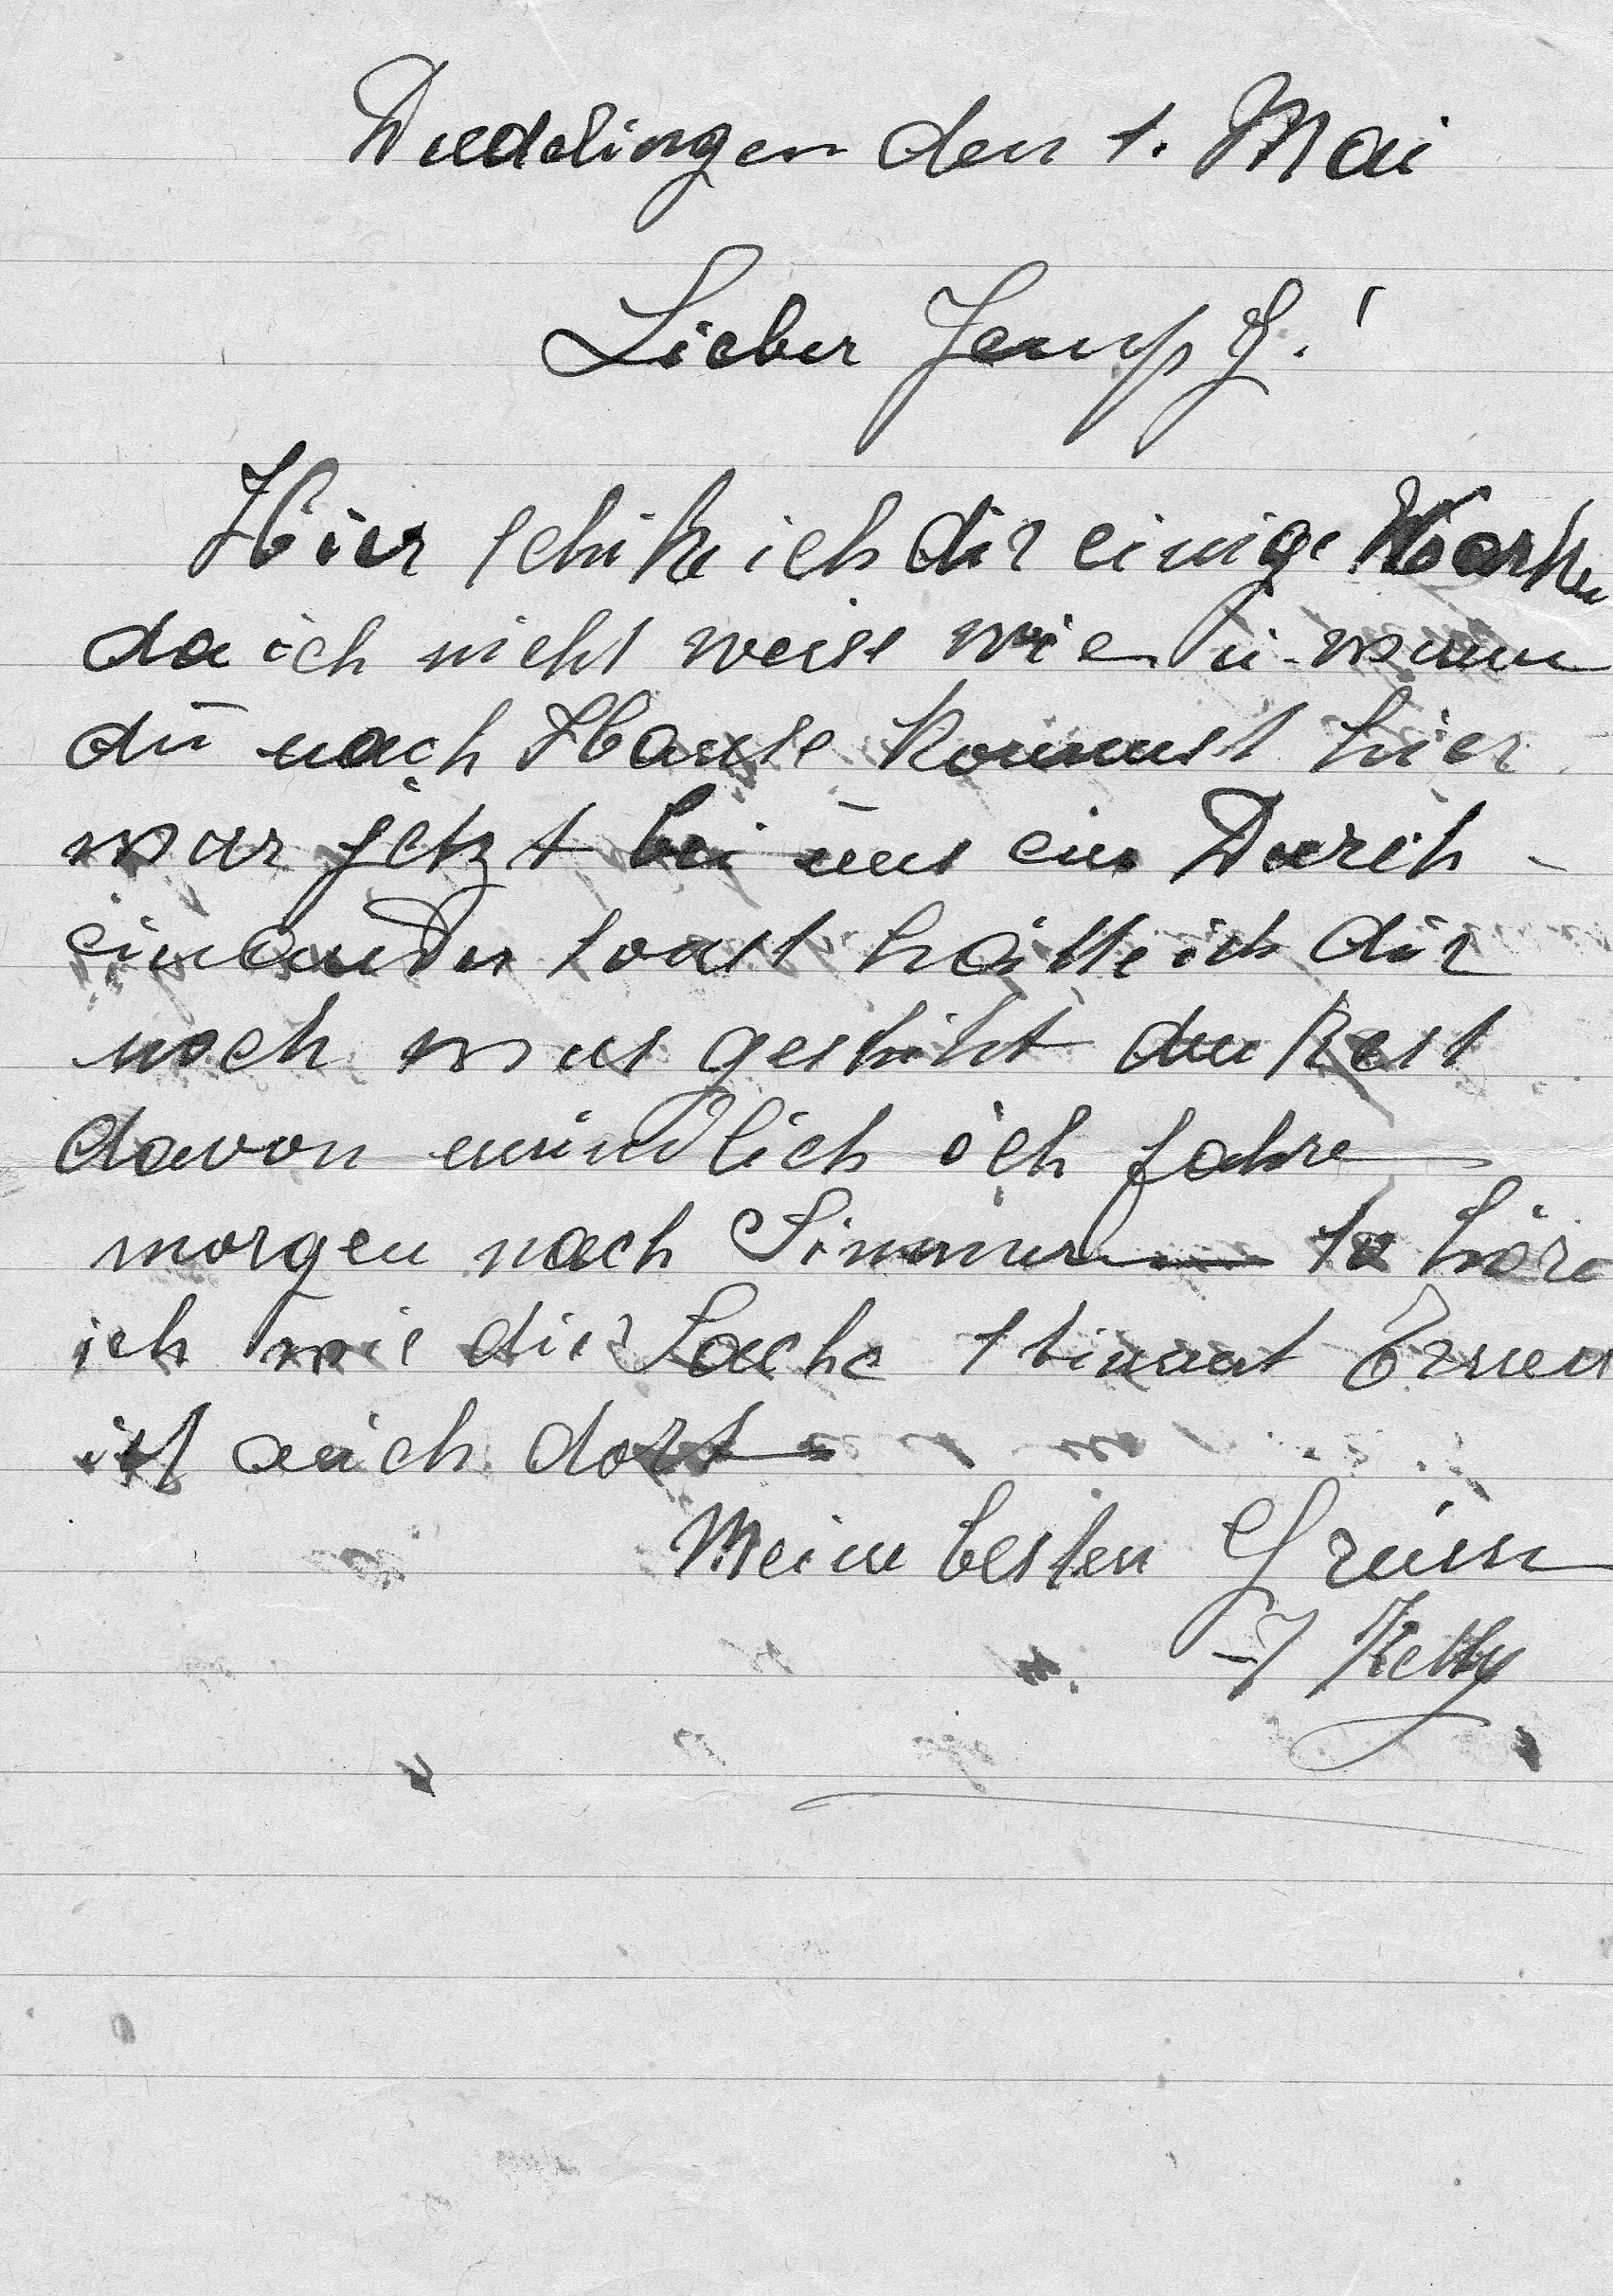 Düdelingen den 1. Mai
Lieber Jemp J.!
Hier schike ich dir einige
da ich nicht weiss wie u. wann
dü nach Hause kommst hier
war jetzt bei üns ein Dürch-
einander sonst hätte ich dir
noch was geschikt den Rest
davon mündlich ich fahre
morgen nach Simmern so höre
ich wie die Sache stimmt
ist auch dort
Meine besten Grüsse
Ketty